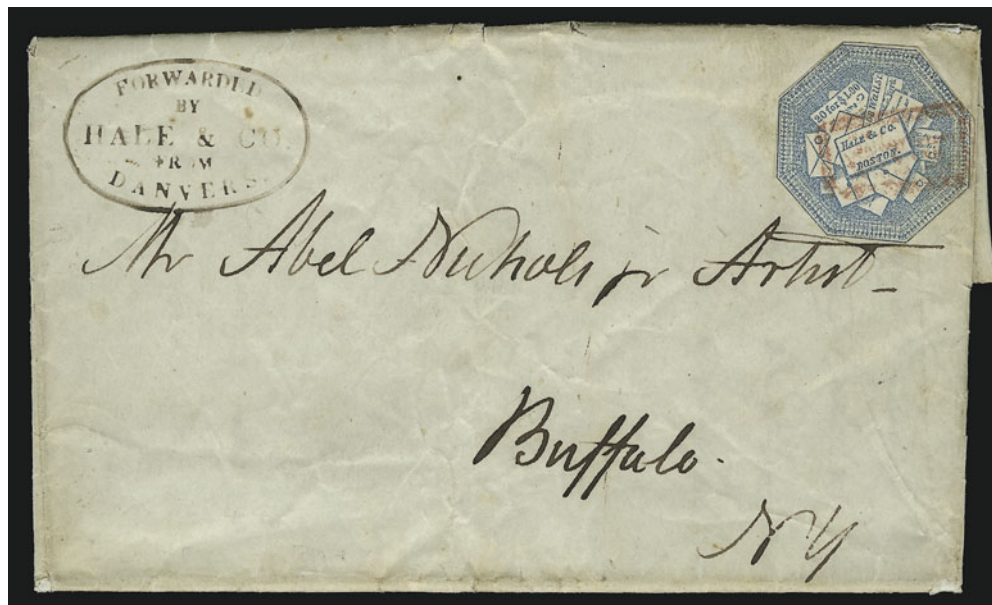 FORWARDED
BY
HALE & CO.
FROM
DANVERS.
20 for $1.00
HALE & Co.
BOSTON.
Mr Abel Nichols jr Artist
Buffalo.
NY